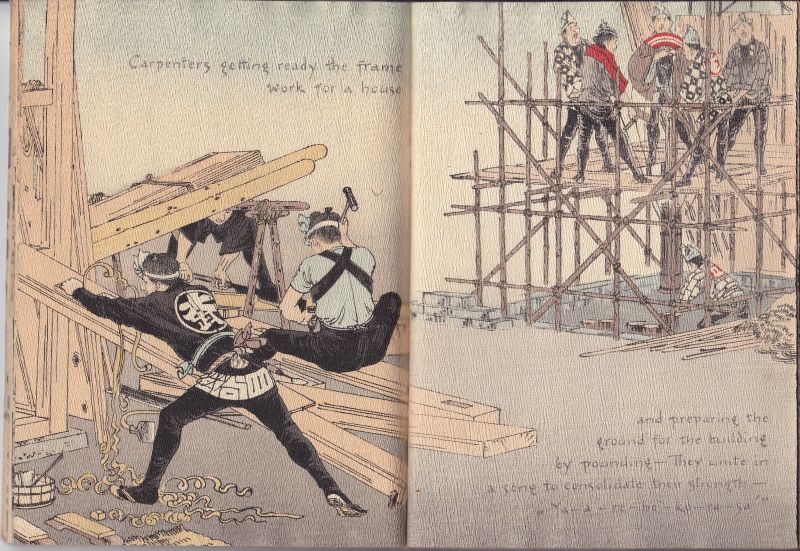 Carpenters getting ready the frame
work for a house
and preparing the
ground for the building
by pounding — They unite in
a song to consolidate their strength
"Ya-a-re-ho-ku-ra-sa"